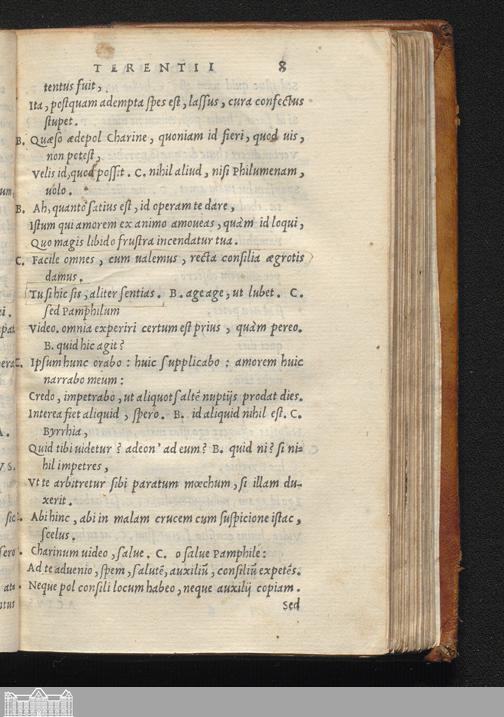 TERENTII 8
tentus fuit,
Ita, postquam adempta spes est, lassus, cura confectus
stupet.
B. Quæso ædepol Charine, quoniam id fieri, quod uis,
non potest,
Velis id, quod possit. C. nihil aliud, nisi Philumenam,
uolo.
B. Ah, quanto satius est, id operam te dare,
Istum qui amorem ex animo amoueas, quàm id loqui,
Quo magis libido frustra incendatur tua.
C. Facile omnes, cum ualemus, recta consilia ægrotis
damus.
Tu si hic sis, aliter sentias. B. age age, ut lubet. C.
sed Pamphilum
Video. omnia experiri certum est prius, quàm pereo.
B. quid hic agit?
C. Ipsum hunc orabo: huic supplicabo: amorem huic
narrabo meum:
Credo, impetrabo, ut aliquot saltē nuptijs prodat dies.
Interea fiet aliquid, spero. B. id aliquid nihil est. C.
Byrrhia,
Quid tibi uidetur? adeon' ad eum? B. quid ni? si ni-
hil impetres,
Vt te arbitretur sibi paratum mœchum, si illam du-
xerit.
Abi hinc, abi in malam crucem cum suspicione istac,
scelus.
Charinum uideo, salue. C. o salue Pamphile:
Ad te aduenio, spem, salutē, auxiliū, consiliū expetēs.
Neque pol consili locum habeo, neque auxilij copiam.
Sed